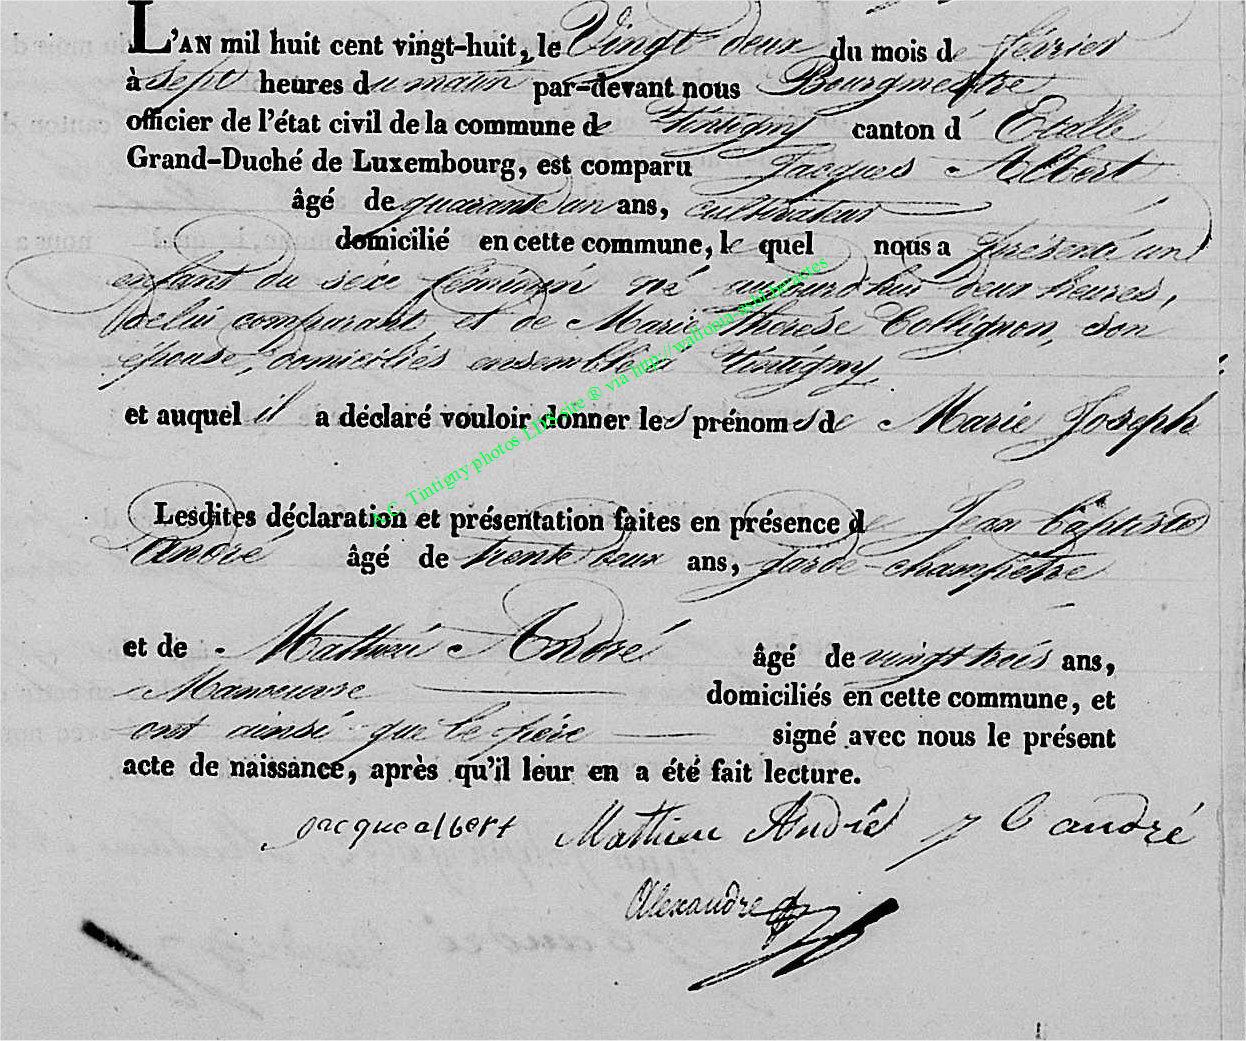 L'AN mil huit cent vingt-huit, le Vingt deux du mois de février
à sept heures du matin par-devant nous Bourgmestre
officier de l'état civil de la commune de Tintigny canton d' Etalle
Grand-Duché de Luxembourg, est comparu Jacques Albert
âgé de quarante un ans, cultivateur
domicilié en cette commune, le quel nous a présenté un
enfant du sexe féminin né aujourd'hui deux heures,
de lui comparant et de Marie Thérèse Collignon, son
épouse, domiciliés ensemble à Tintigny
et auquel il a déclaré vouloir donner les prénoms de Marie Joseph
A.C. Tintigny photos LDS site ® via http://wallonia-asbl.be/actes
Lesdites déclaration et présentation faites en présence de Jean Baptiste
André âgé de trente deux ans, garde-champêtre
et de Mathieu André âgé de vingt trois ans,
Manoeuvre domiciliés en cette commune, et
ont ainsi que le père signé avec nous le présent
acte de naissance, après qu'il leur en a été fait lecture.
jacque albert Mathieu André J B andré
Alexandre